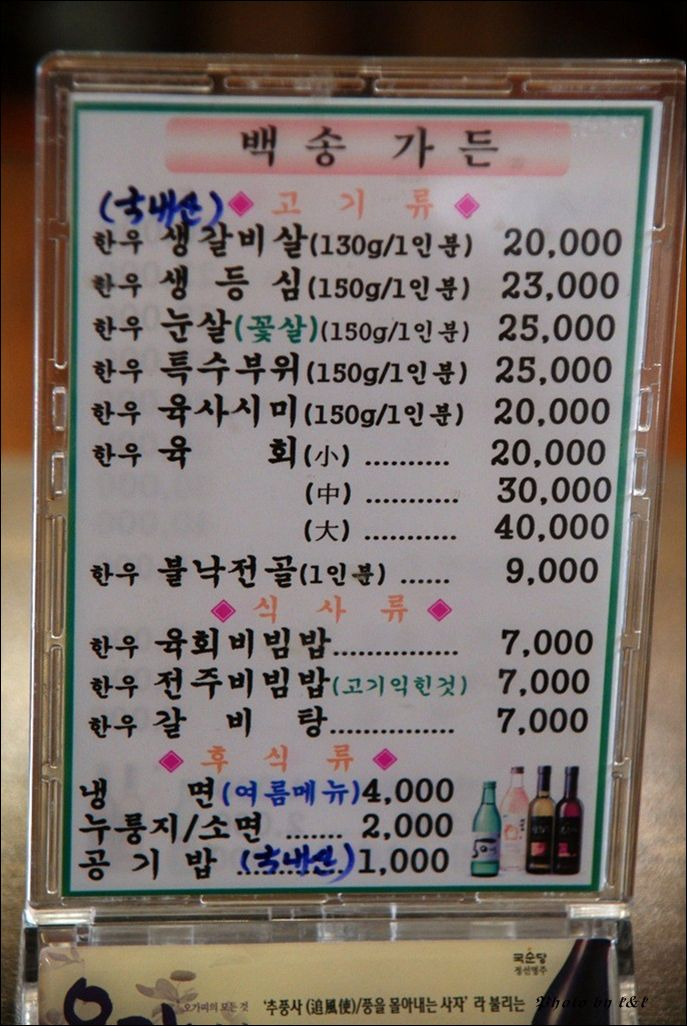 백송 가든
(국내산) ◆ 고 기 류 ◆
한우 생갈비살(130g/1인분) 20,000
한우 생 등 심(150g/1인분) 23,000
한우 눈살(꽃살)(150g/1인분) 25,000
한우 특수부위(150g/1인분) 25,000
한우 육사시미(150g/1인분) 20,000
한우 육 회(小) .......... 20,000
(中) ............ 30,000
(大) ........... 40,000
한우 불낙전골(1인분) ...... 9,000
◆ 식 사 류 ◆
한우 육회비빔밥................ 7,000
한우 전주비빔밥(고기익힌것) 7,000
한우 갈 비 탕................ 7,000
◆ 후 식 류 ◆
냉 면(여름메뉴)4,000
누룽지/소면 ....... 2,000
공 기 밥 (국내산)1,000
국순당
정선명주
오가피의 모든 것
'추풍사 (追風使)/풍을 몰아내는 사자' 라 불리는
Photo by k&k